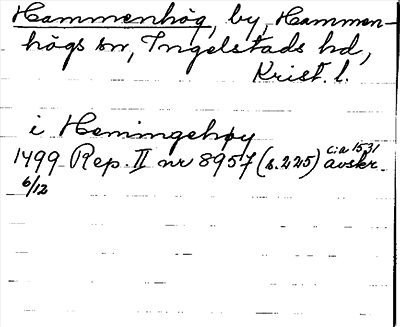 Hammenhög, by, Hammen-
högs sn, Ingelstads hd,
Krist. l.
i Hemingehøy
1499 Rep. II nr 8957 (s. 225) c:a 1531 avskr.
6/12